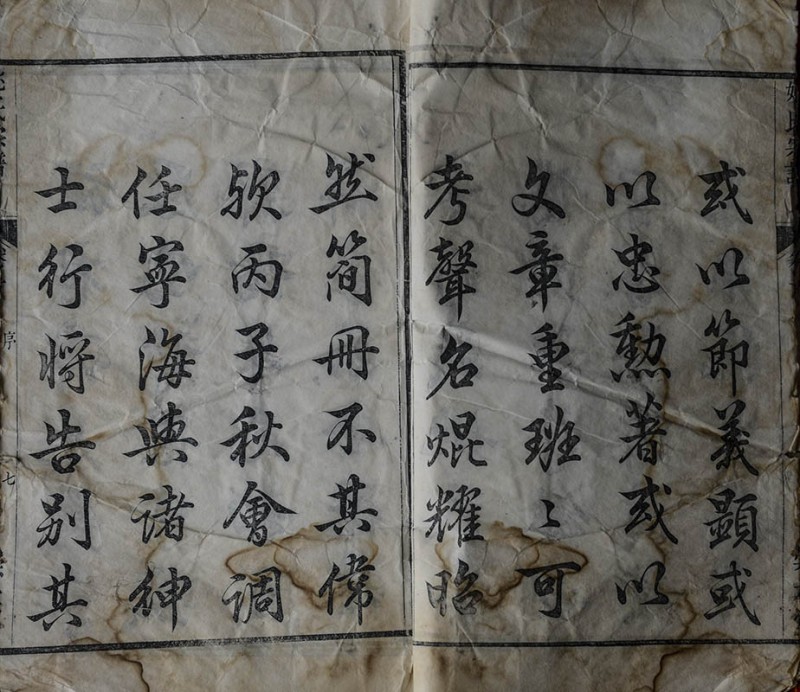 或以節義顯或
以忠勲著或以
文章重班〻可
考聲名焜耀昭
然簡冊不其偉
歟丙子秋會調
任寧海與諸紳
士行將告别其
序
七